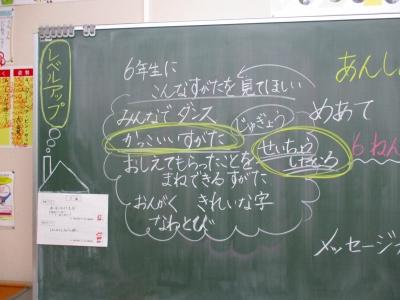 レベルアップ
6年生に
こんなすがたを見てほしい
みんなでダンス
かっこいいすがた
じゅぎょう
おしえてもらったことを
まねできるすがた
おんがく きれいな字
なわとび
せいちょう
したところ
あんし
めあて
6ねん
メッセージ